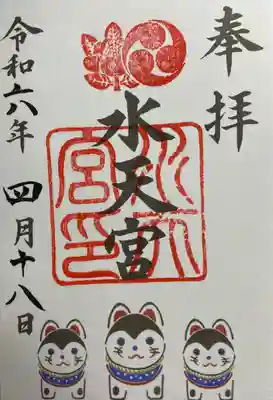 奉拝
水天宮
水天宮印
令和六年 四月十八日